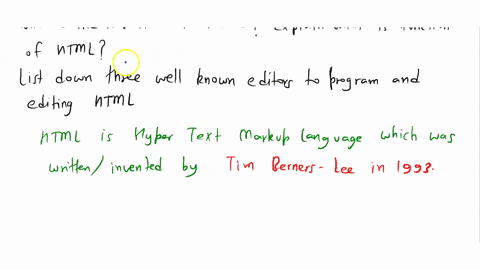 Explain what is function
of HTML?
List down three well known editors to program and
editing HTML
HTML is Hyper Text Markup Language which was
written/invented by Tim Berners-Lee in 1993.